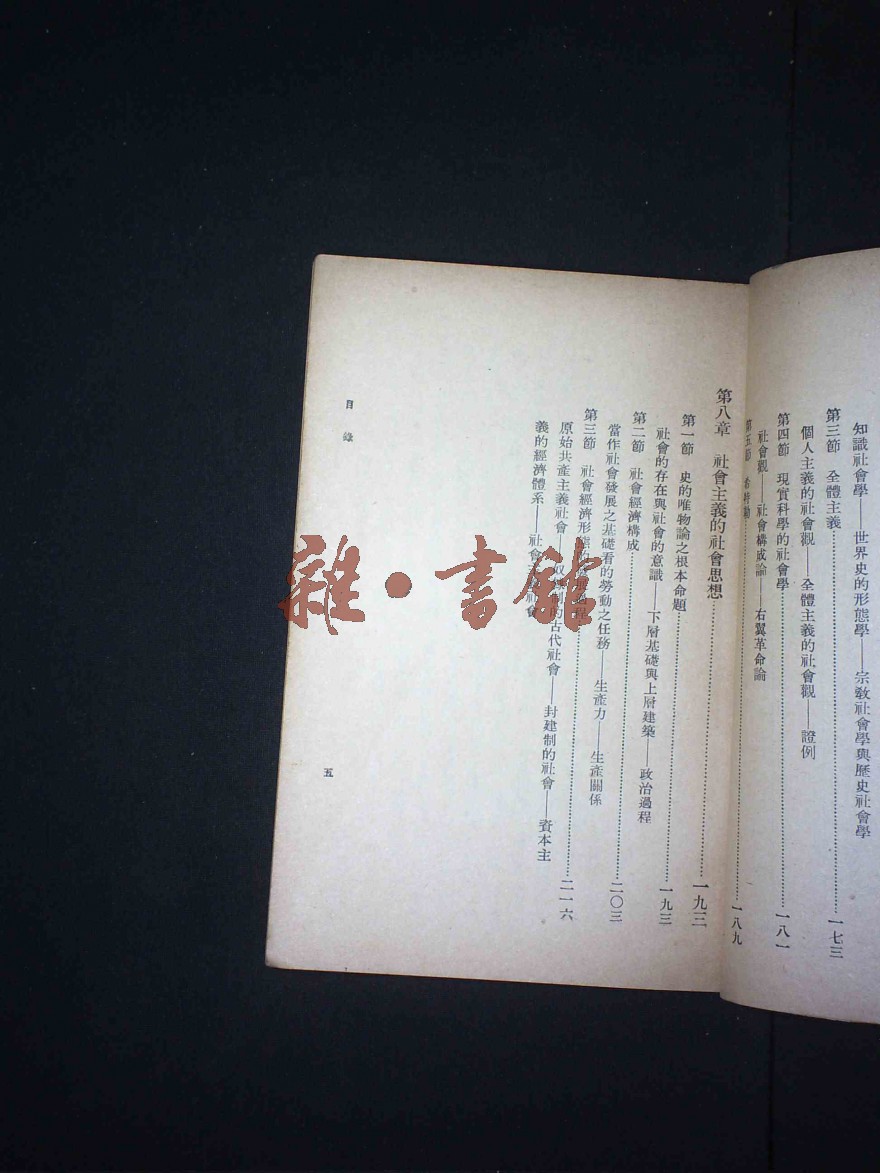 知識社會學——世界史的形態學——宗教社會學與歷史社會學
第三節 全體主義……一七三
個人主義的社會觀——全體主義的社會觀——證例
第四節 現實科學的社會學……一八一
社會觀——社會構成論——右翼革命論
第五節……一八九
第八章 社會主義的社會思想……一九三
第一節 史的唯物論之根本命題……一九三
社會的存在與社會的意識——下層基礎與上層建築——政治過程
第二節 社會經濟構成……二〇三
當作社會發展之基礎看的勞動之任務——生產力——生產關係
第三節 社會經濟形態的……二一六
原始共產主義社會——的古代社會——封建制的社會——資本主
義的經濟體系——社會
目錄
五
雜·書館